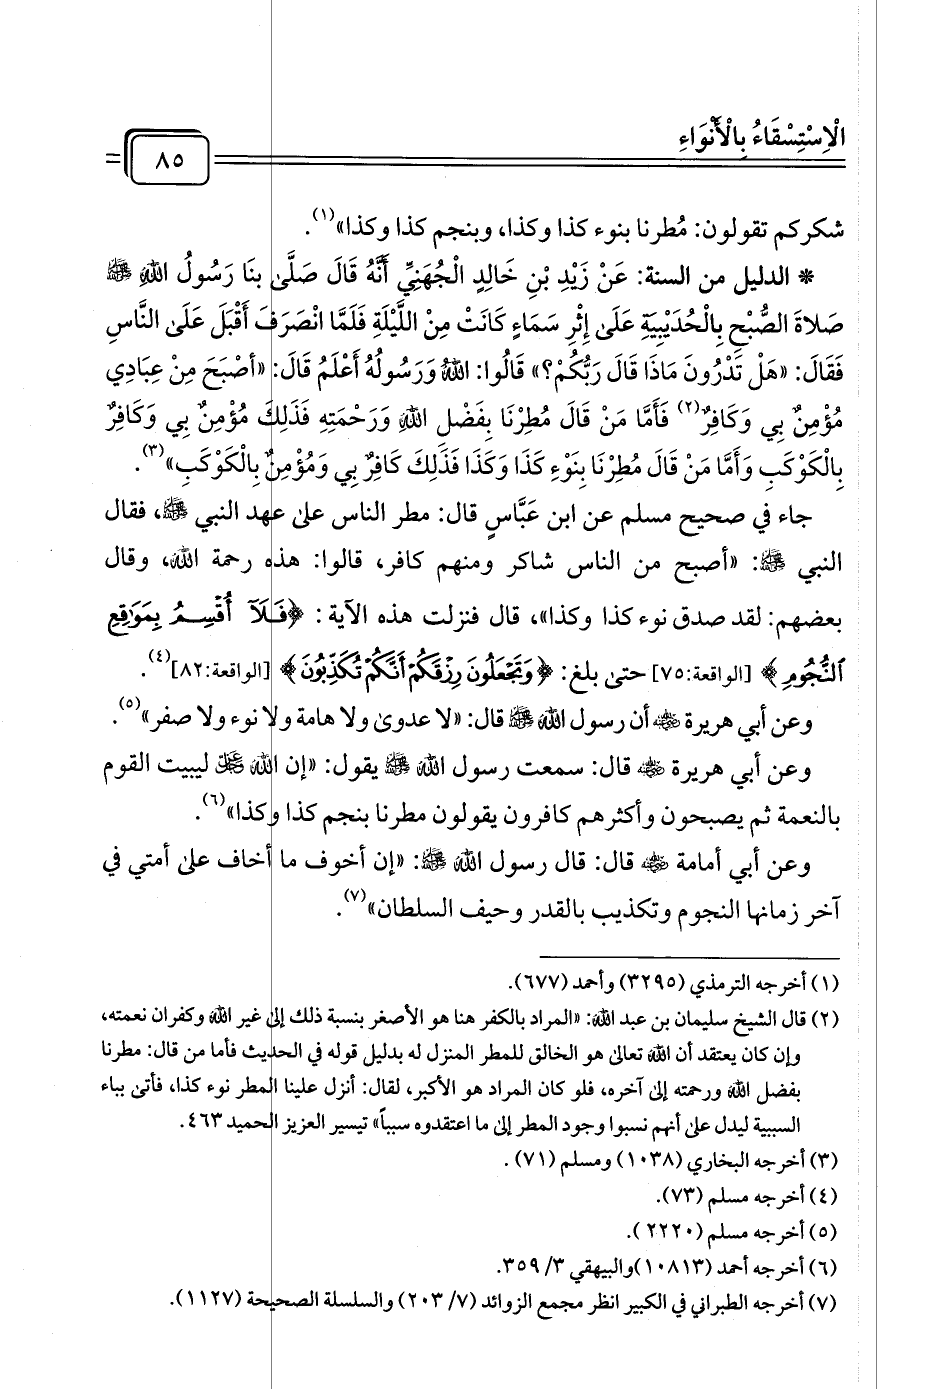 الْاِسْتِسْقَاءُ بِالْأَنْوَاءِ
٨٥
شكركم تقولون: مُطرنا بنوء كذا وكذا، وبنجم كذا وكذا»(١).
* الدليل من السنة: عَنْ زَيْدِ بْنِ خَالِدٍ الْجُهَنِيِّ أَنَّهُ قَالَ صَلَّى بِنَا رَسُولُ اللهِ ﷺ
صَلاةَ الصُّبْحِ بِالْحُدَيْبِيَةِ عَلَى إِثْرِ سَمَاءٍ كَانَتْ مِنْ اللَّيْلَةِ فَلَمَّا انْصَرَفَ أَقْبَلَ عَلَى النَّاسِ
فَقَالَ: «هَلْ تَدْرُونَ مَاذَا قَالَ رَبُّكُمْ؟» قَالُوا: اللهُ وَرَسُولُهُ أَعْلَمُ قَالَ: «أَصْبَحَ مِنْ عِبَادِي
مُؤْمِنٌ بِي وَكَافِرٌ(٢) فَأَمَّا مَنْ قَالَ مُطِرْنَا بِفَضْلِ اللهِ وَرَحْمَتِهِ فَذَلِكَ مُؤْمِنٌ بِي وَكَافِرٌ
بِالْكَوْكَبِ وَأَمَّا مَنْ قَالَ مُطِرْنَا بِنَوْءِ كَذَا وَكَذَا فَذَلِكَ كَافِرٌ بِي وَمُؤْمِنٌ بِالْكَوْكَبِ»(٣).
جاء في صحيح مسلم عن ابن عَبَّاسٍ قال: مطر الناس على عهد النبي ﷺ، فقال
النبي ﷺ: «أصبح من الناس شاكر ومنهم كافر، قالوا: هذه رحمة الله، وقال
بعضهم: لقد صدق نوء كذا وكذا»، قال فنزلت هذه الآية: ﴿فَلَآ أُقْسِمُ بِمَوَٰقِعِ
ٱلنُّجُومِ﴾ [الواقعة:٧٥] حتى بلغ: ﴿وَتَجْعَلُونَ رِزْقَكُمْ أَنَّكُمْ تُكَذِّبُونَ﴾ [الواقعة:٨٢](٤).
وعن أبي هريرة ﵁ أن رسول الله ﷺ قال: «لا عدوى ولا هامة ولا نوء ولا صفر»(٥).
وعن أبي هريرة ﵁ قال: سمعت رسول الله ﷺ يقول: «إن الله ﷿ ليبيت القوم
بالنعمة ثم يصبحون وأكثرهم كافرون يقولون مطرنا بنجم كذا وكذا»(٦).
وعن أبي أمامة ﵁ قال: قال رسول الله ﷺ: «إن أخوف ما أخاف على أمتي في
آخر زمانها النجوم وتكذيب بالقدر وحيف السلطان»(٧).
(١) أخرجه الترمذي (٣٢٩٥) وأحمد (٦٧٧).
(٢) قال الشيخ سليمان بن عبد الله: «المراد بالكفر هنا هو الأصغر بنسبة ذلك إلى غير الله وكفران نعمته،
وإن كان يعتقد أن الله تعالى هو الخالق للمطر المنزل له بدليل قوله في الحديث فأما من قال: مطرنا
بفضل الله ورحمته إلى آخره، فلو كان المراد هو الأكبر، لقال: أنزل علينا المطر نوء كذا، فأتى بباء
السببية ليدل على أنهم نسبوا وجود المطر إلى ما اعتقدوه سبباً» تيسير العزيز الحميد ٤٦٣.
(٣) أخرجه البخاري (١٠٣٨) ومسلم (٧١) .
(٤) أخرجه مسلم (٧٣).
(٥) أخرجه مسلم (٢٢٢٠ ).
(٦) أخرجه أحمد (١٠٨١٣)والبيهقي ٣/ ٣٥٩.
(٧) أخرجه الطبراني في الكبير انظر مجمع الزوائد (٧/ ٢٠٣) والسلسلة الصحيحة (١١٢٧).